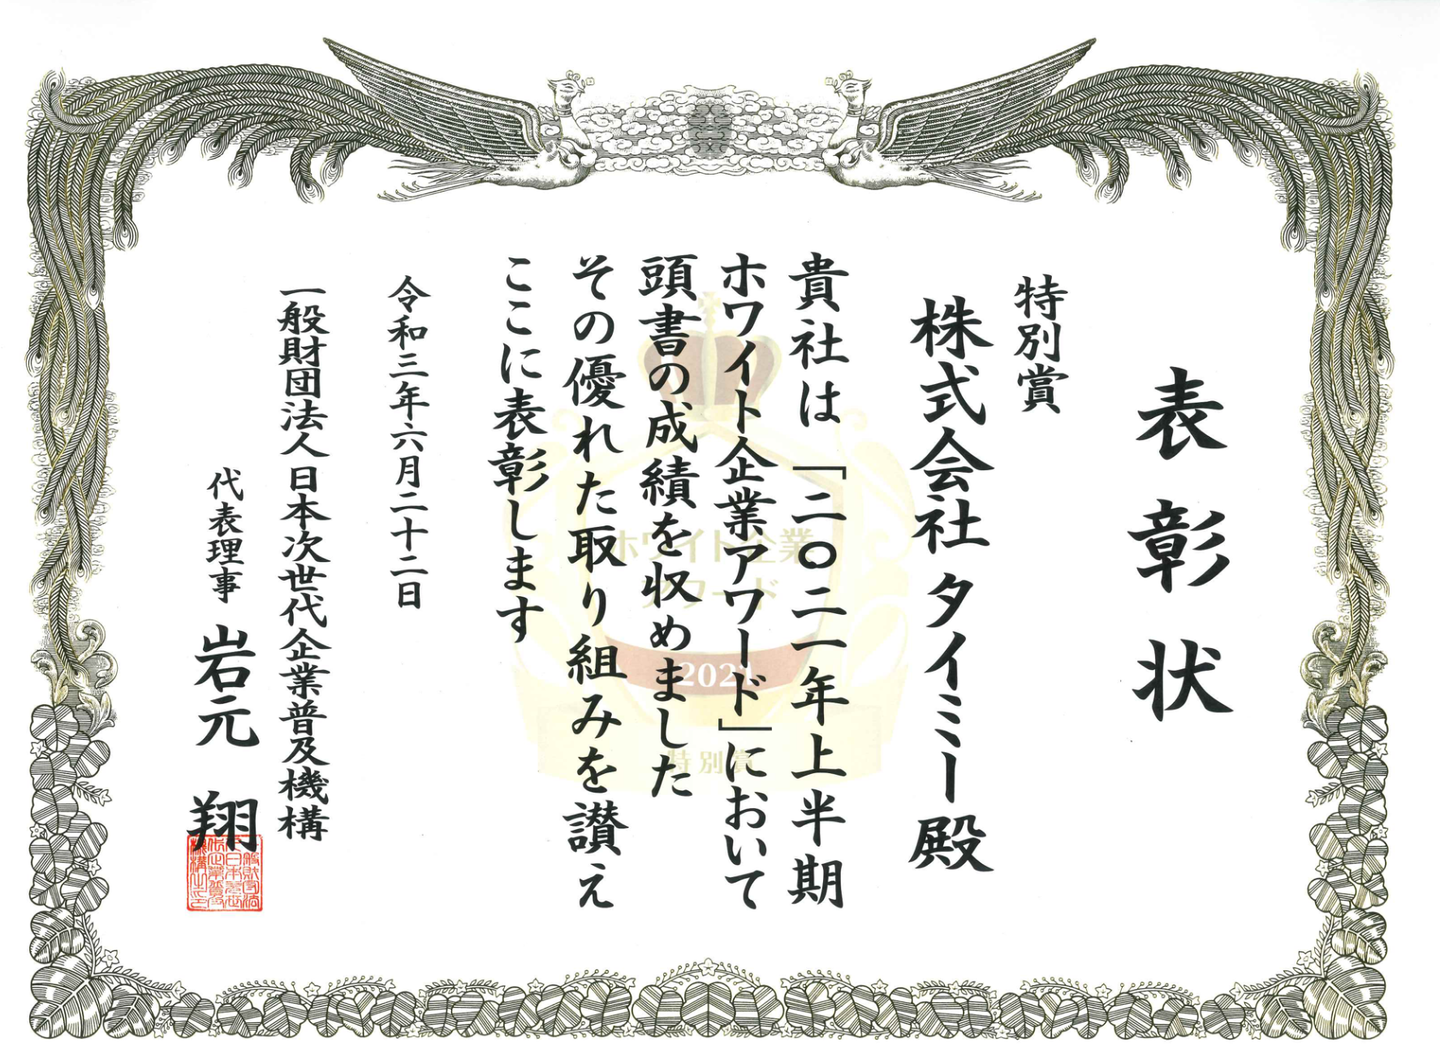 表彰状
特別賞
株式会社タイミー殿
貴社は「二〇二一年上半期
ホワイト企業アワード」において
頭書の成績を収めました
その優れた取り組みを讃え
ここに表彰します
令和三年六月二十二日
一般財団法人日本次世代企業普及機構
代表理事 岩元 翔
ホワイト企業
アワード
2021
特別賞